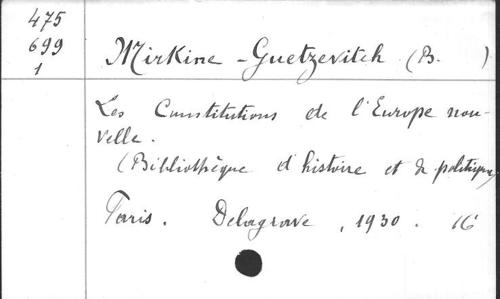 475
699
1
Mirkine-Guetzevitch (B. )
Les Constitutions de l'Europe nou-
velle.
(Bibliothèque d'histoire et de politique)
Paris. Delagrave, 1930. 16°